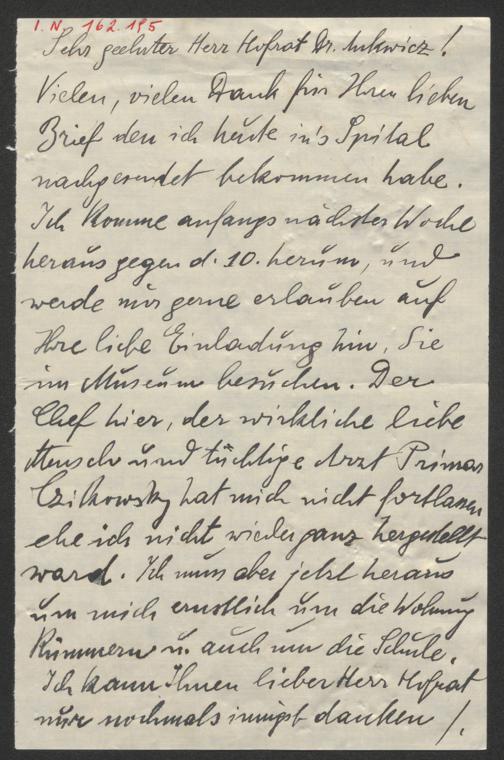 I. N. 162.195
Sehr geehrter Herr Hofrat Dr. !
Vielen, vielen Dank für Ihren lieben
Brief den ich heute in's Spital
nachgesendet bekommen habe.
Ich komme anfangs nächster Woche
heraus gegen d. 10. herum, und
werde mir gerne erlauben auf
Ihre liebe Einladung hin, Sie
im Museum besuchen. Der
Chef hier, der wirkliche liebe
Mensch und tüchtige Arzt Primar
Czikowsky hat mich nicht fortlassen
ehe ich nicht wieder ganz hergestellt
ward. Ich muss aber jetzt heraus
um mich ernstlich um die Wohnung
kümmern u. auch um die Schule.
Ich kann Ihnen lieber Herr Hofrat
nur nochmals innigst danken /.